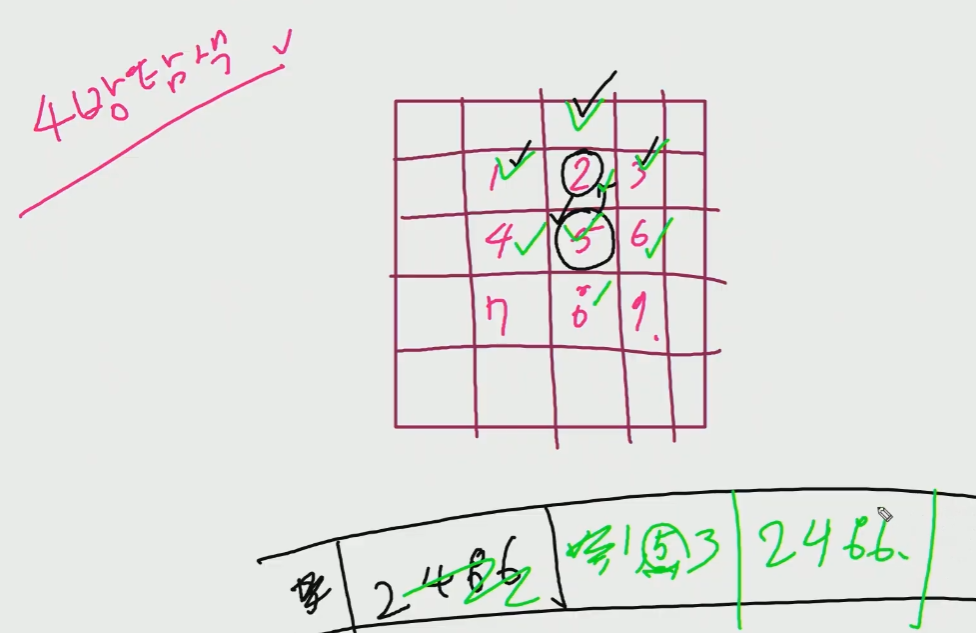 4방탐색
1 2 3
4 5 6
7 8 9
2 4 8 6 1 5 3 2 4 8 6